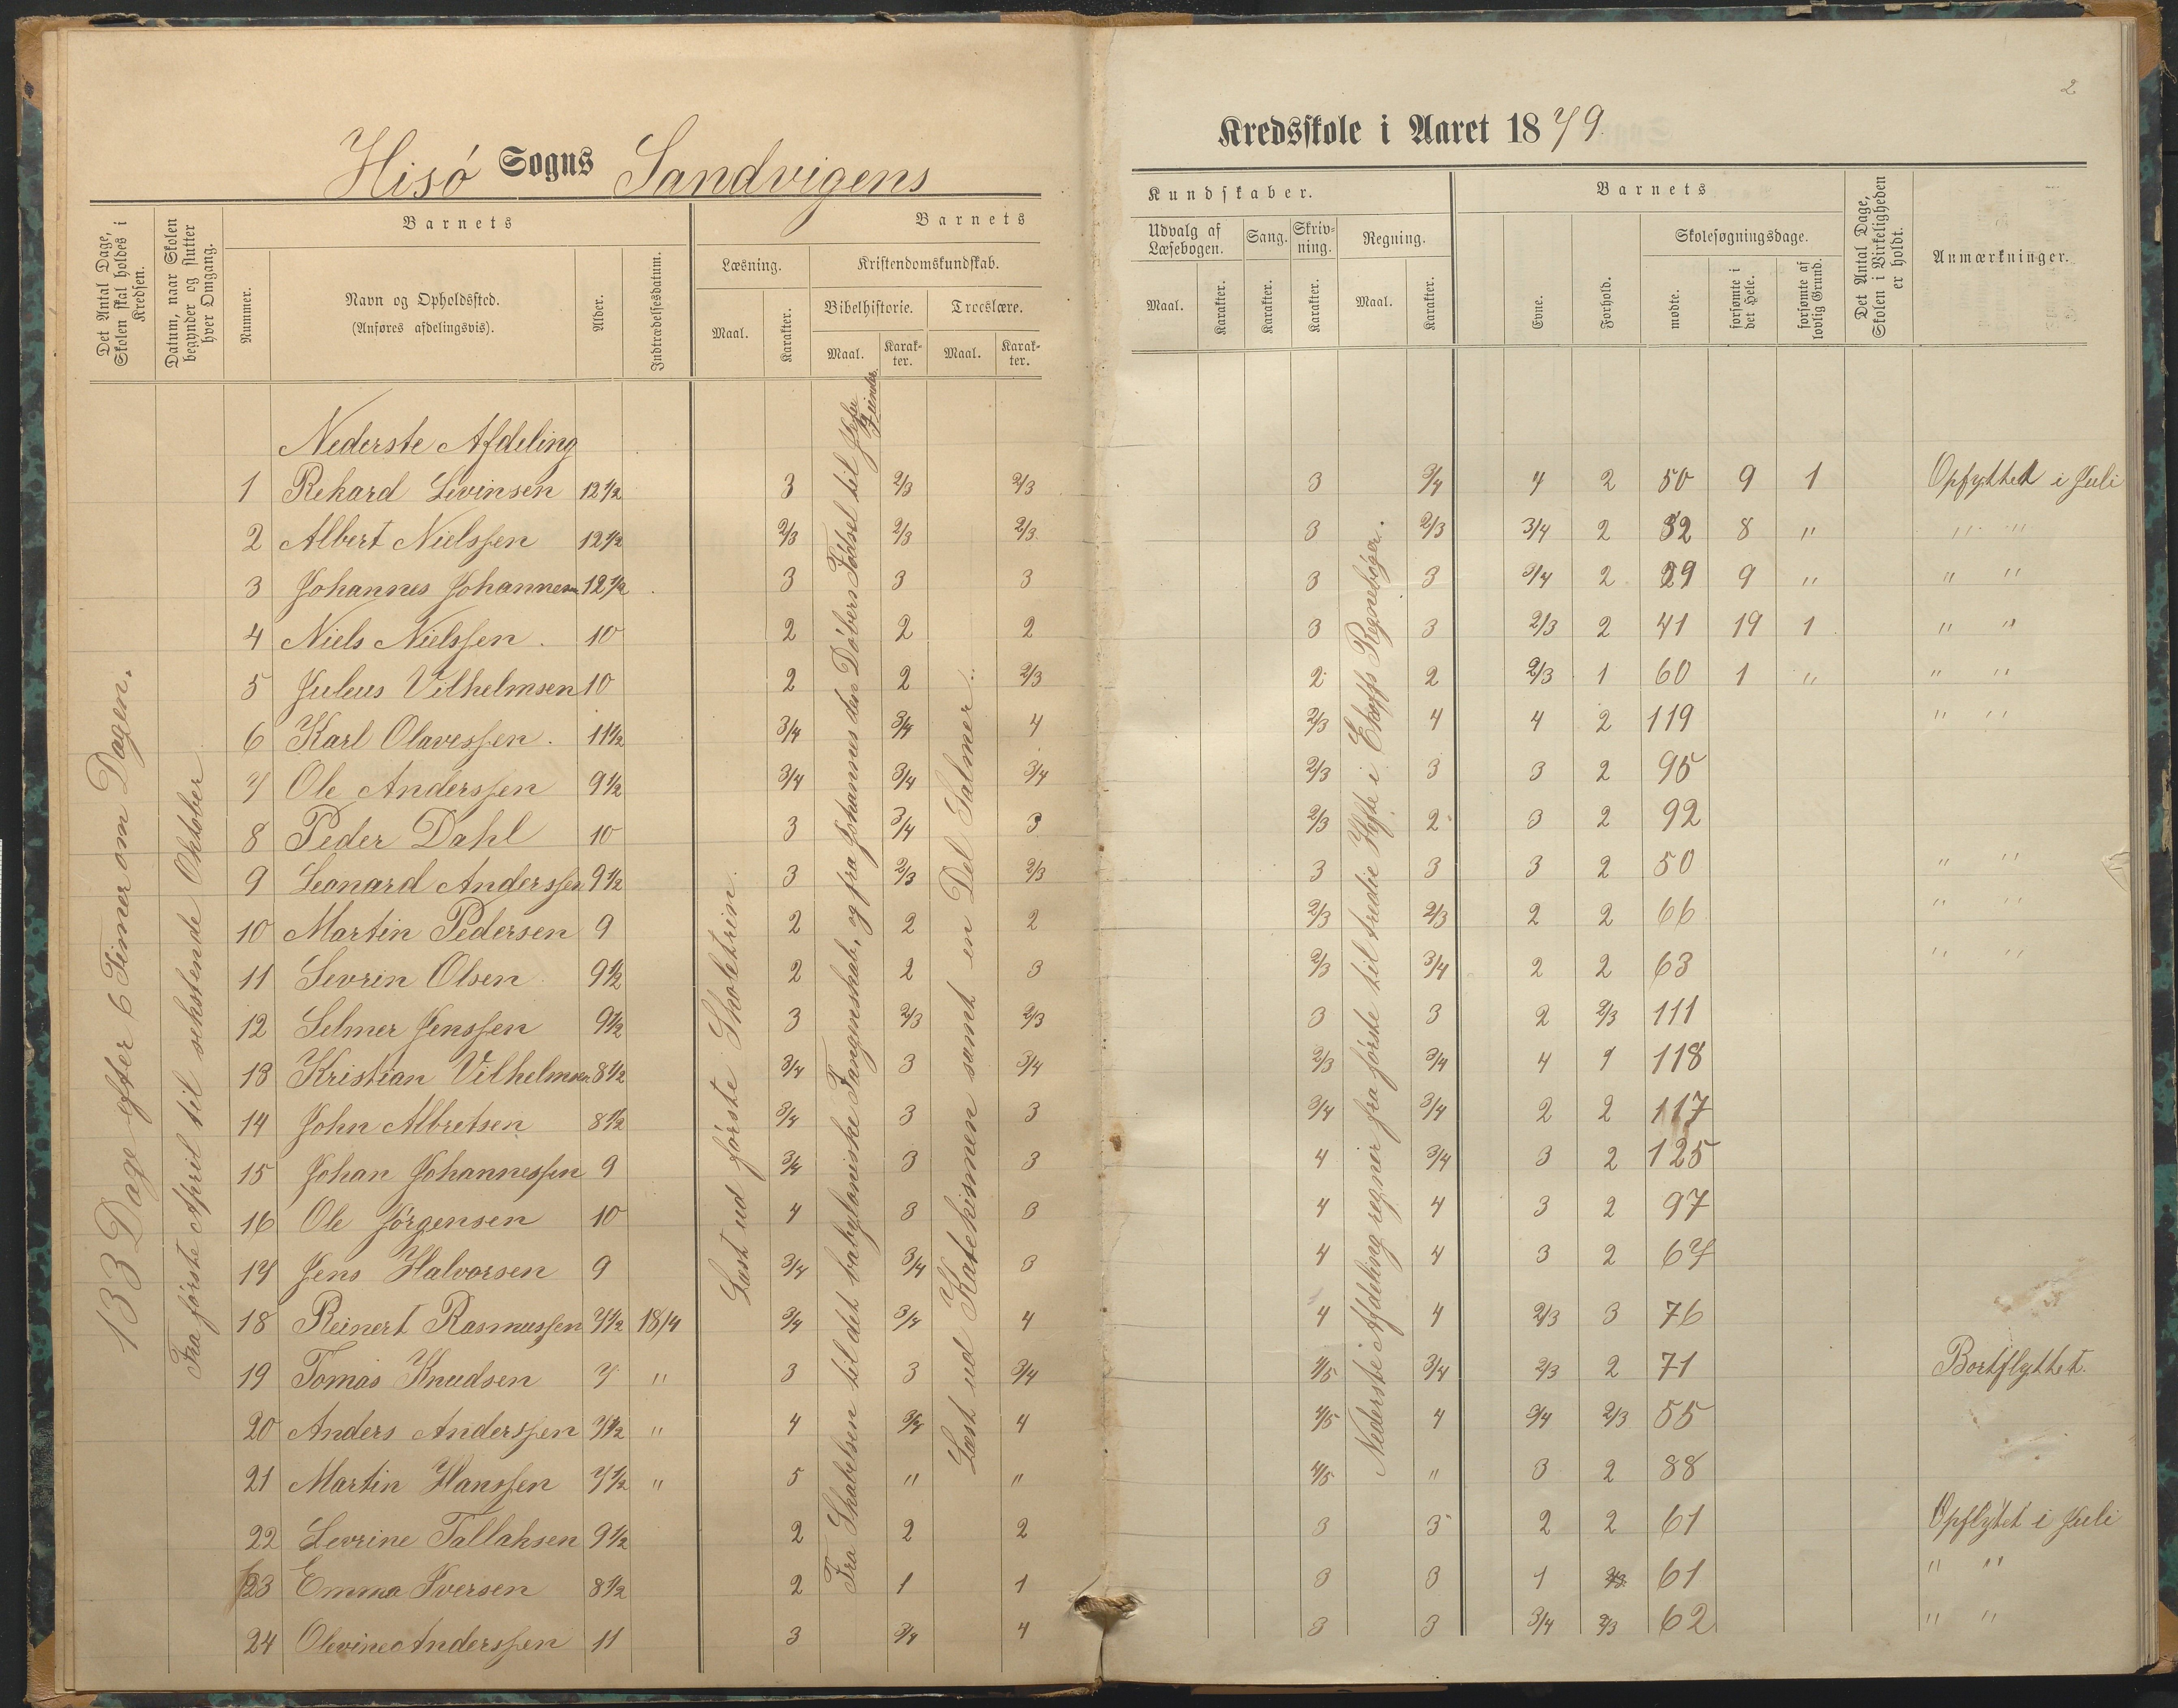 2
Hisó Sogns Sandvigens
Kredsskole i Aaret 1879.
Det Antal Dage, Skolen skal holdes i Kredsen.
Datum, naar Skolen begynder og slutter hver Omgang.
Barnets
Nummer.
Navn og Opholdssted.
(Anføres afdelingsvis).
Alder.
Indtrædelsesdatum.
Barnets
Læsning.
Maal.
Karakter.
Kristendomskundskab.
Bibelhistorie.
Maal.
Karakter.
Troeslære.
Maal.
Karakter.
Kundskaber.
Udvalg af Læsebogen.
Maal.
Karakter.
Sang.
Karakter.
Skrivning.
Karakter.
Regning.
Maal.
Karakter.
Barnets
Evne.
Forhold.
Skolesøgningsdage.
mødte.
forsømte i det Hele.
forsømte af lovlig Grund.
Det Antal Dage, Skolen i Virkeligheden er holdt.
Anmærkninger.
133 Dage efter 6 Timer om Dagen.
Fra første April til sekstende Oktober
Læst ud første Skoletrin.
Fra Skabelsen til det babyloniske Fangneskab, og fra Johannes den Döbers Födsel til Jesu Fiender.
Læst ud Katekismen samt en Del Salmer.
Nederste Afdeling regner fra første til tredie Hefte i Regnebøger.
Nederste Afdeling
1 Rekard Levinsen 12 1/2 3 2/3 2/3 3 3/4 4 2 50 9 1 Opfyttet i Juli
2 Albert Nielssen 12 1/2 2/3 2/3 2/3 3 2/3 3/4 2 32 8 " " "
3 Johannes Johannesen 12 1/2 3 3 3 3 3 3/4 2 29 9 " " "
4 Niels Nielssen. 10 2 2 2 3 3 2/3 2 41 19 1 " "
5 Juleus Vilhelmsen 10 2 2 2/3 2 2 2/3 1 60 1 " " "
6 Karl Olavessen. 11 1/2 3/4 3/4 4 2/3 4 4 2 119 " "
7 Ole Anderssen 9 1/2 3/4 3/4 3/4 2/3 3 3 2 95
8 Peder Dahl 10 3 3/4 3 2/3 2 3 2 92
9 Leonard Anderssen 9 1/2 3 2/3 2/3 3 3 3 2 50 " "
10 Martin Pedersen 9 2 2 2 2/3 2/3 2 2 66 " "
11 Sevrin Olsen 9 1/2 2 2 3 2/3 3/4 2 2 63 " "
12 Selmer Jenssen 9 1/2 3 2/3 2/3 3 3 2 2/3 111
13 Kristian Vilhelmsen 8 1/2 3/4 3 3/4 2/3 3/4 4 1 118
14 John Albretsen 8 1/2 3/4 3 3 3/4 3/4 2 2 117
15 Johan Johannessen 9 3/4 3 3 4 3/4 3 2 125
16 Ole Jörgensen 10 4 3 3 4 4 3 2 97
17 Jens Halvorsen 9 3/4 3/4 3 4 4 3 2 67
18 Reinert Rasmussen 7 1/2 18/4 3/4 3/4 4 4 4 2/3 3 76
19 Tomas Knudsen 7 " 3 3 3/4 4/5 3/4 2/3 2 71 Bortflyttet.
20 Anders Anderssen 7 1/2 " 4 3/4 4 4/5 4 3/4 2/3 55
21 Martin Hanssen 7 1/2 " 5 " " 4/5 " 3 2 88
22 Sevrine Tallaksen 9 1/2 2 2 2 3 3 2 2 61 Opflytet i Juli
23 Emma Iversen 8 1/2 2 1 1 3 3 1 2/3 61 " "
24 Olevine Anderssen 11 3 3/4 4 3 3 3/4 2/3 62 " "